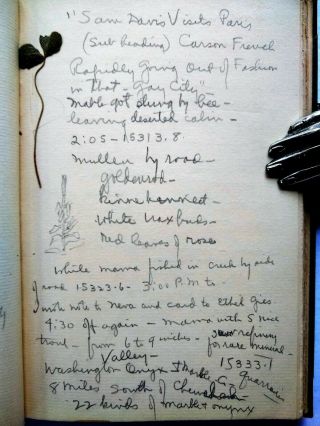 "Sam Davis Visits Paris
(Sub heading) Carson French
Rapidly Going Out of Fashion
in That - Gay City -
Mabb got stung by bee -
leaving deserted cabin -
2:05 - 15313.8.
Mullen by road -
goldenrod -
kinnekennick -
white wax buds -
Red leaves of roses
While mama fished in creek by side
of road 15323.6 - 3:00 P.M. to
I write note to Neva and card to Ethel
4:30 off again - Mama with 5 nice
trout - from 6 to 9 inches - saw refinery
for rare mineral
15333.1
Washington Valley - Onyx & Marble Quarries
8 miles South of
22 kinds of marble & onyx